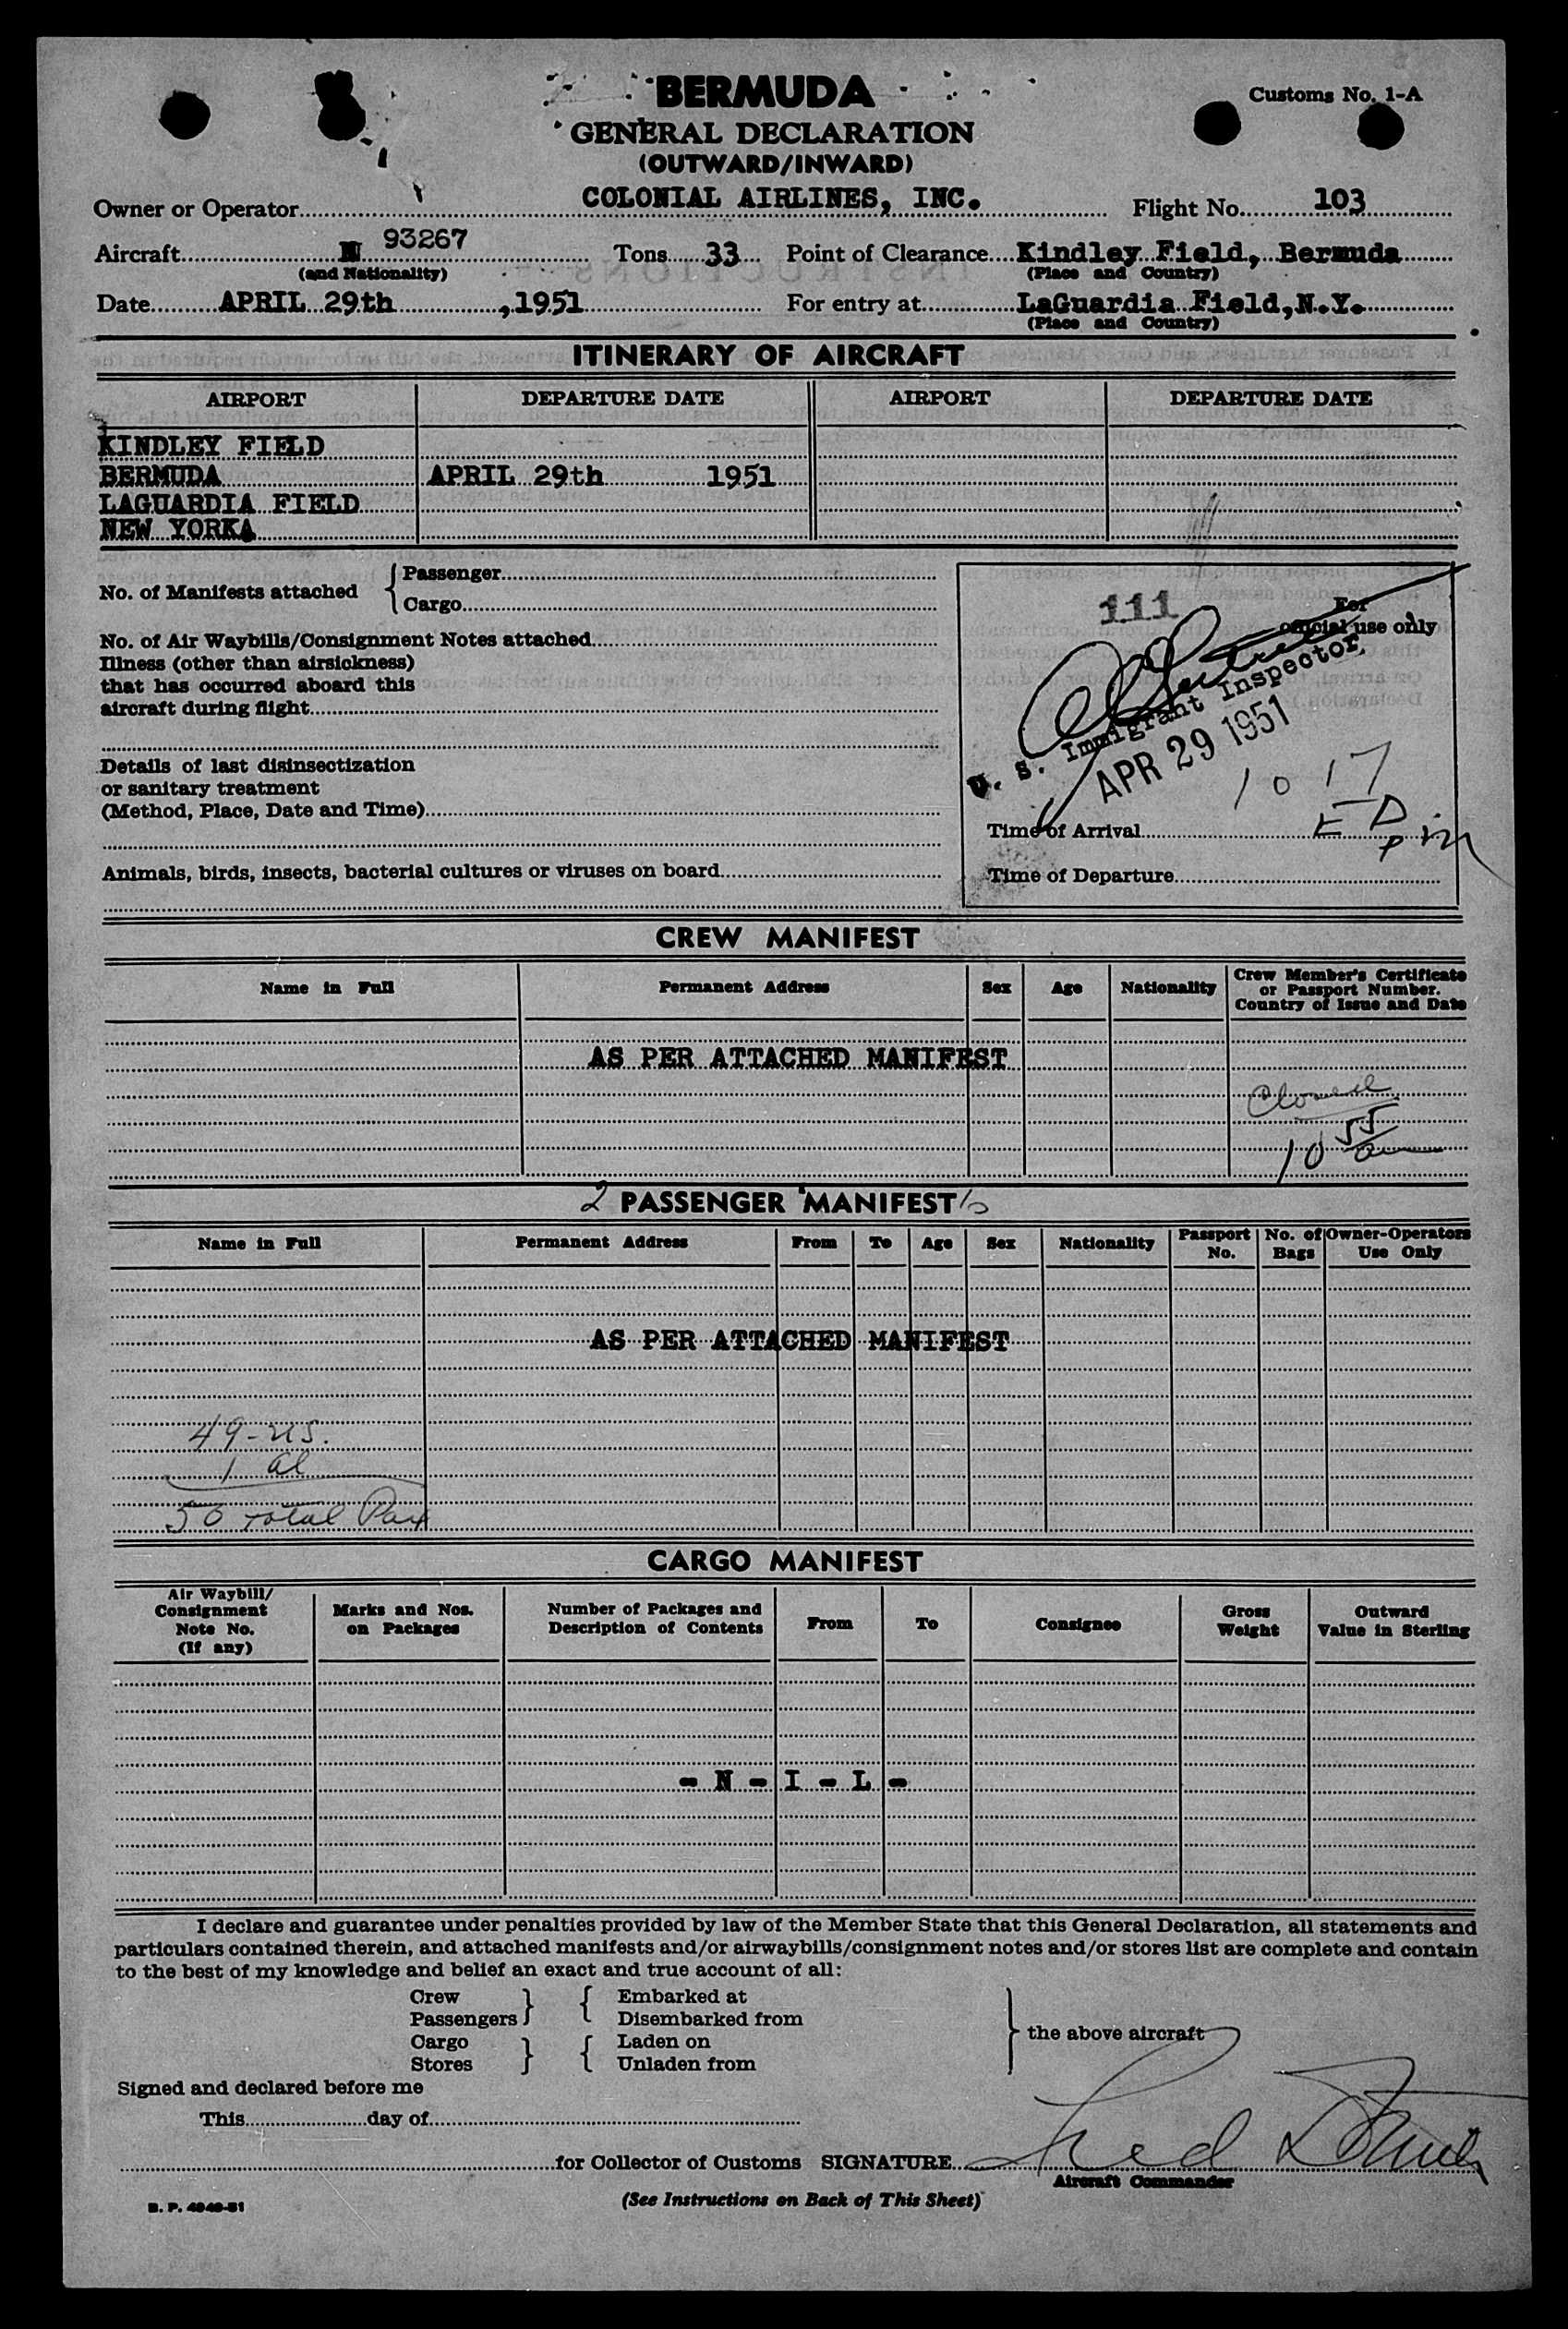 BERMUDA
Customs No. 1-A
GENERAL DECLARATION
(OUTWARD/INWARD)
Owner or Operator COLONIAL AIRLINES, INC. Flight No. 103
Aircraft N 93267 Tons 33 Point of Clearance Kindley Field, Bermuda
(and Nationality) (Place and Country)
Date APRIL 29th, 1951 For entry at LaGuardia Field, N.Y.
(Place and Country)
ITINERARY OF AIRCRAFT
AIRPORT DEPARTURE DATE AIRPORT DEPARTURE DATE
KINDLEY FIELD
BERMUDA APRIL 29th 1951
LAGUARDIA FIELD
NEW YORKA
No. of Manifests attached { Passenger
Cargo
111
For
official use only
No. of Air Waybills/Consignment Notes attached
Illness (other than airsickness)
that has occurred aboard this
aircraft during flight
U. S. Immigrant Inspector
APR 29 1951
Details of last disinsectization
or sanitary treatment
(Method, Place, Date and Time)
10 17
E D
pm
Time of Arrival
Animals, birds, insects, bacterial cultures or viruses on board
Time of Departure
CREW MANIFEST
Name in Full Permanent Address Sex Age Nationality Crew Member's Certificate
or Passport Number.
Country of Issue and Date
AS PER ATTACHED MANIFEST
10 55
2 PASSENGER MANIFEST
Name in Full Permanent Address From To Age Sex Nationality Passport No. No. of Bags Owner-Operators Use Only
AS PER ATTACHED MANIFEST
49-US.
1 al
50 total Pax
CARGO MANIFEST
Air Waybill/
Consignment
Note No.
(If any)
Marks and Nos.
on Packages
Number of Packages and
Description of Contents
From To Consignee
Gross
Weight
Outward
Value in Sterling
- N - I - L -
I declare and guarantee under penalties provided by law of the Member State that this General Declaration, all statements and
particulars contained therein, and attached manifests and/or airwaybills/consignment notes and/or stores list are complete and contain
to the best of my knowledge and belief an exact and true account of all:
Crew } { Embarked at
Passengers Disembarked from
Cargo } { Laden on } the above aircraft
Stores Unladen from
Signed and declared before me
This day of
for Collector of Customs SIGNATURE
Aircraft Commander
(See Instructions on Back of This Sheet)
B. P. 4949-51